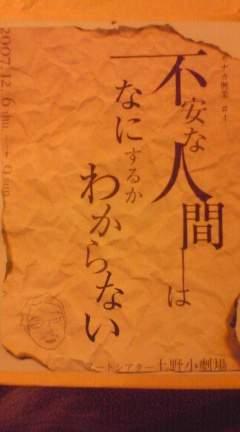 不安な人間は
なにするか
わからない
2007.12.6 thu
アートシアター上野小劇場